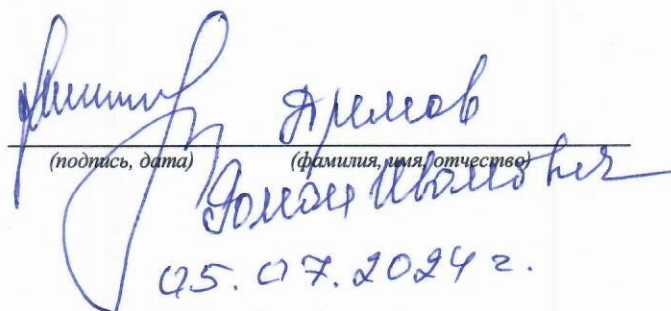 (подпись, дата) (фамилия, имя, отчество)
Роман Иванович
05.07.2024 г.